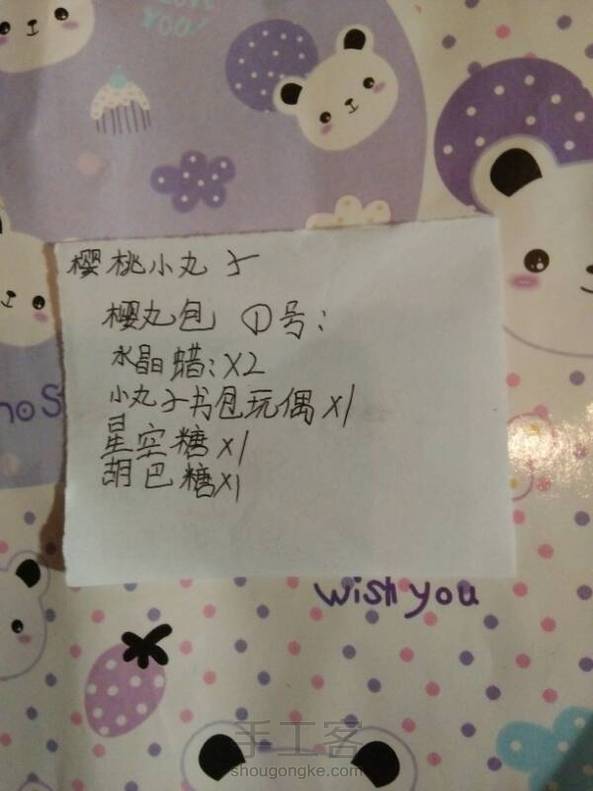 YOO!
樱桃小丸子
樱丸包 ①号:
水晶蜡:X2
小丸子书包玩偶X1
星空糖X1
胡巴糖X1
noS
wish you
手工客
shougongke.com